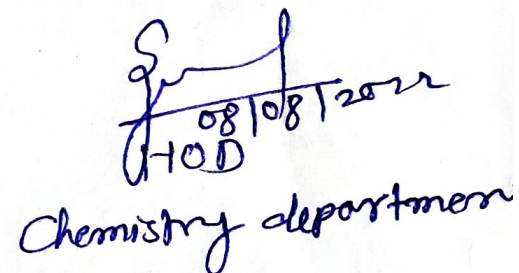 08/08/2022
HOD
Chemistry departmen